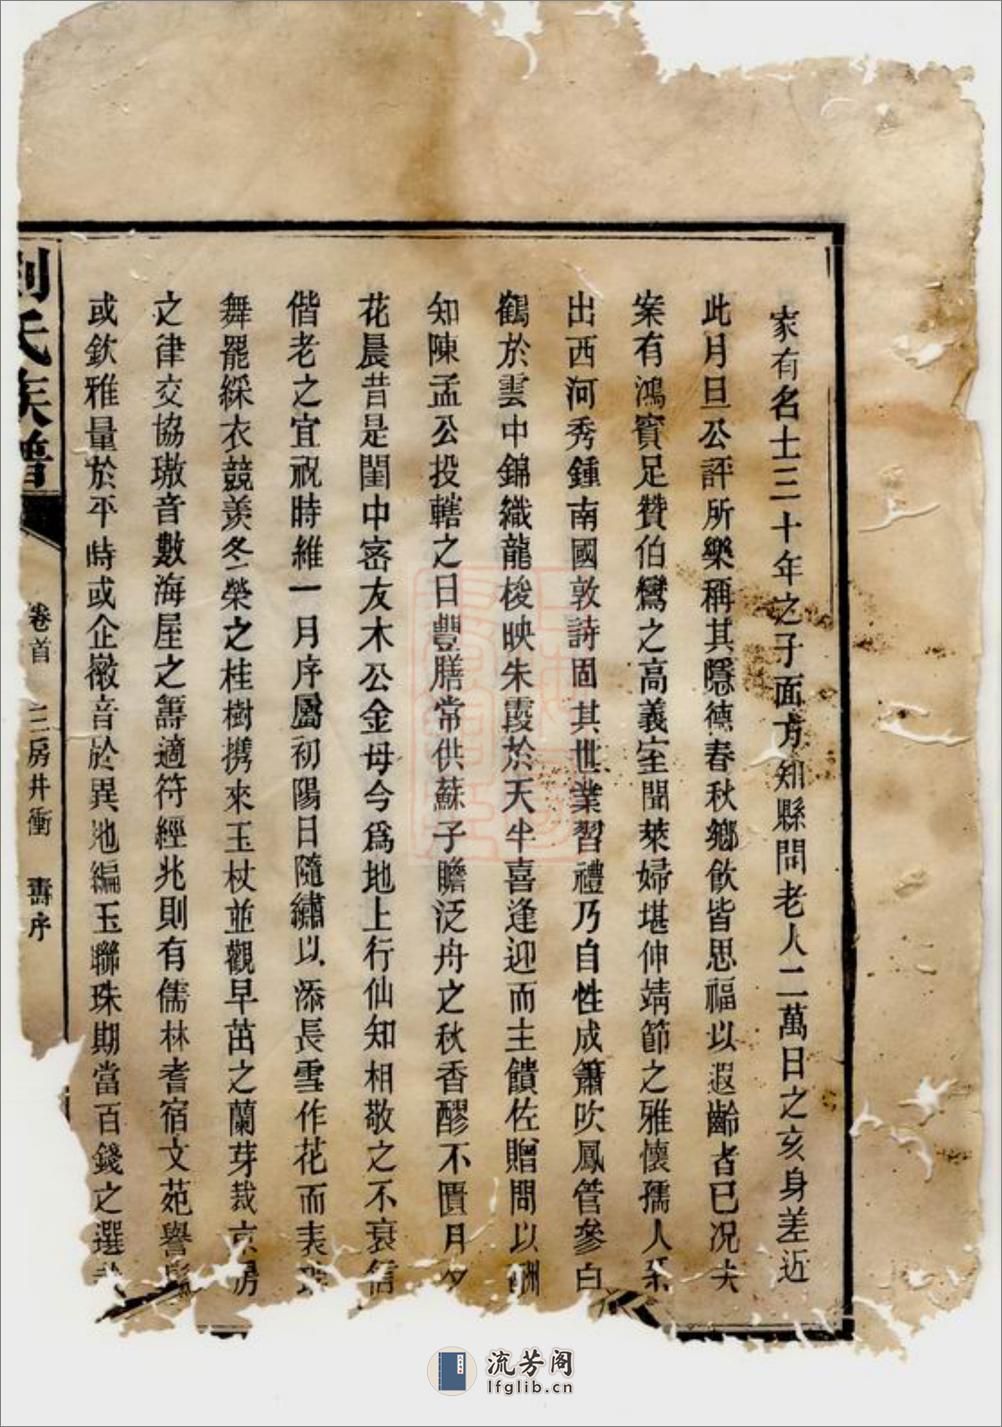 家有名士三十年之子面方知縣問老人二萬日之亥身差近
此月旦公評所樂稱其隱德春秋鄉飲皆思福以遐齡者已况夫
案有鴻賓足贊伯鸞之高義室聞萊婦堪伸靖節之雅懷孺人系
出西河秀鍾南國敦詩固其世業習禮乃自性成簫吹鳳管參白
鶴於雲中錦織龍梭映朱霞於天半喜逢迎而主饋佐贈問以酬
知陳孟公投轄之日豐膳常供蘇子瞻泛舟之秋香醪不匱月夕
花晨昔是閨中密友木公金母今爲地上行仙知相敬之不衰信
偕老之宜祝時維一月序屬初陽日隨繡以添長雪作花而表
舞罷綵衣競羨冬榮之桂樹携來玉杖並觀早茁之蘭芽裁京房
之律交協璈音數海屋之籌適符經兆則有儒林耆宿文苑譽髦
或欽雅量於平時或企徽音於異地編玉聯珠期當百錢之選
劉氏族譜
卷首
三房井衝
壽序
流芳阁
lfglib.cn